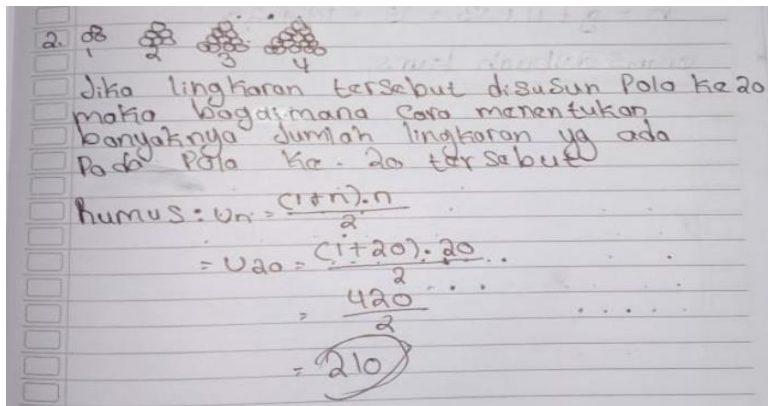 2.
1 2 3 4
Jika lingkaran tersebut disusun Pola ke 20
maka bagaimana cara menentukan
banyaknya Jumlah lingkaran yg ada
Pada Pola ke. 20 tersebut
Rumus : Un = (1+n).n / 2
= U20 = (1+20).20 / 2
= 420 / 2
= 210